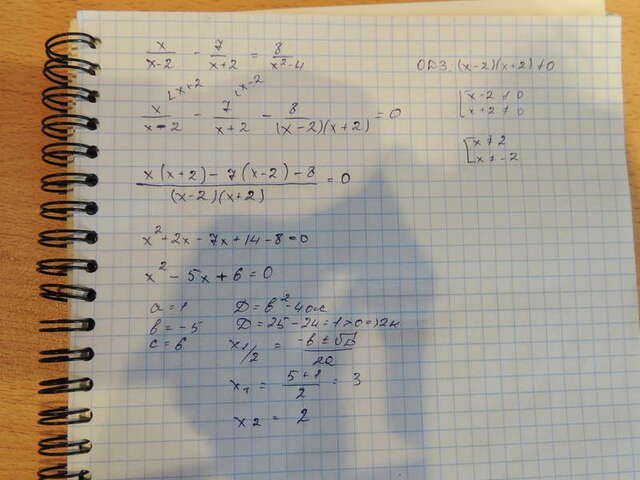 x/(x-2) - 7/(x+2) = 8/(x²-4)
ОДЗ: (x-2)(x+2)≠0
x/(x-2) ∠x+2 - 7/(x+2) ∠x-2 - 8/((x-2)(x+2)) = 0
[x-2≠0
x+2≠0
[x≠2
x≠-2
(x(x+2)-7(x-2)-8)/((x-2)(x+2)) = 0
x²+2x-7x+14-8=0
x²-5x+6=0
a=1 D=b²-4ac
b=-5 D=25-24=1>0=>2к
c=6 x1/2 = (-b±√D)/2a
x1 = (5+1)/2 = 3
x2 = 2